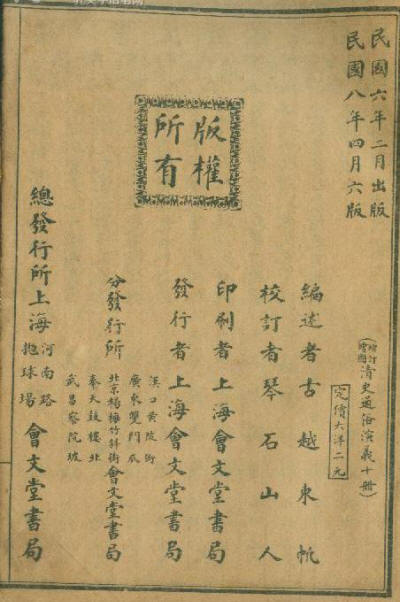 民國六年二月出版
民國八年四月六版
增訂
繪圖
清史通俗演義十冊
定價大洋二元
版權
所有
編述者古越東帆
校訂者琴石山人
印刷者上海會文堂書局
發行者上海會文堂書局
分發行所
漢口黃陂街
廣東雙門底
北京楊梅竹斜街
奉天鼓樓北
武昌察院坡
會文堂書局
總發行所上海
河南路
拋球場
會文堂書局